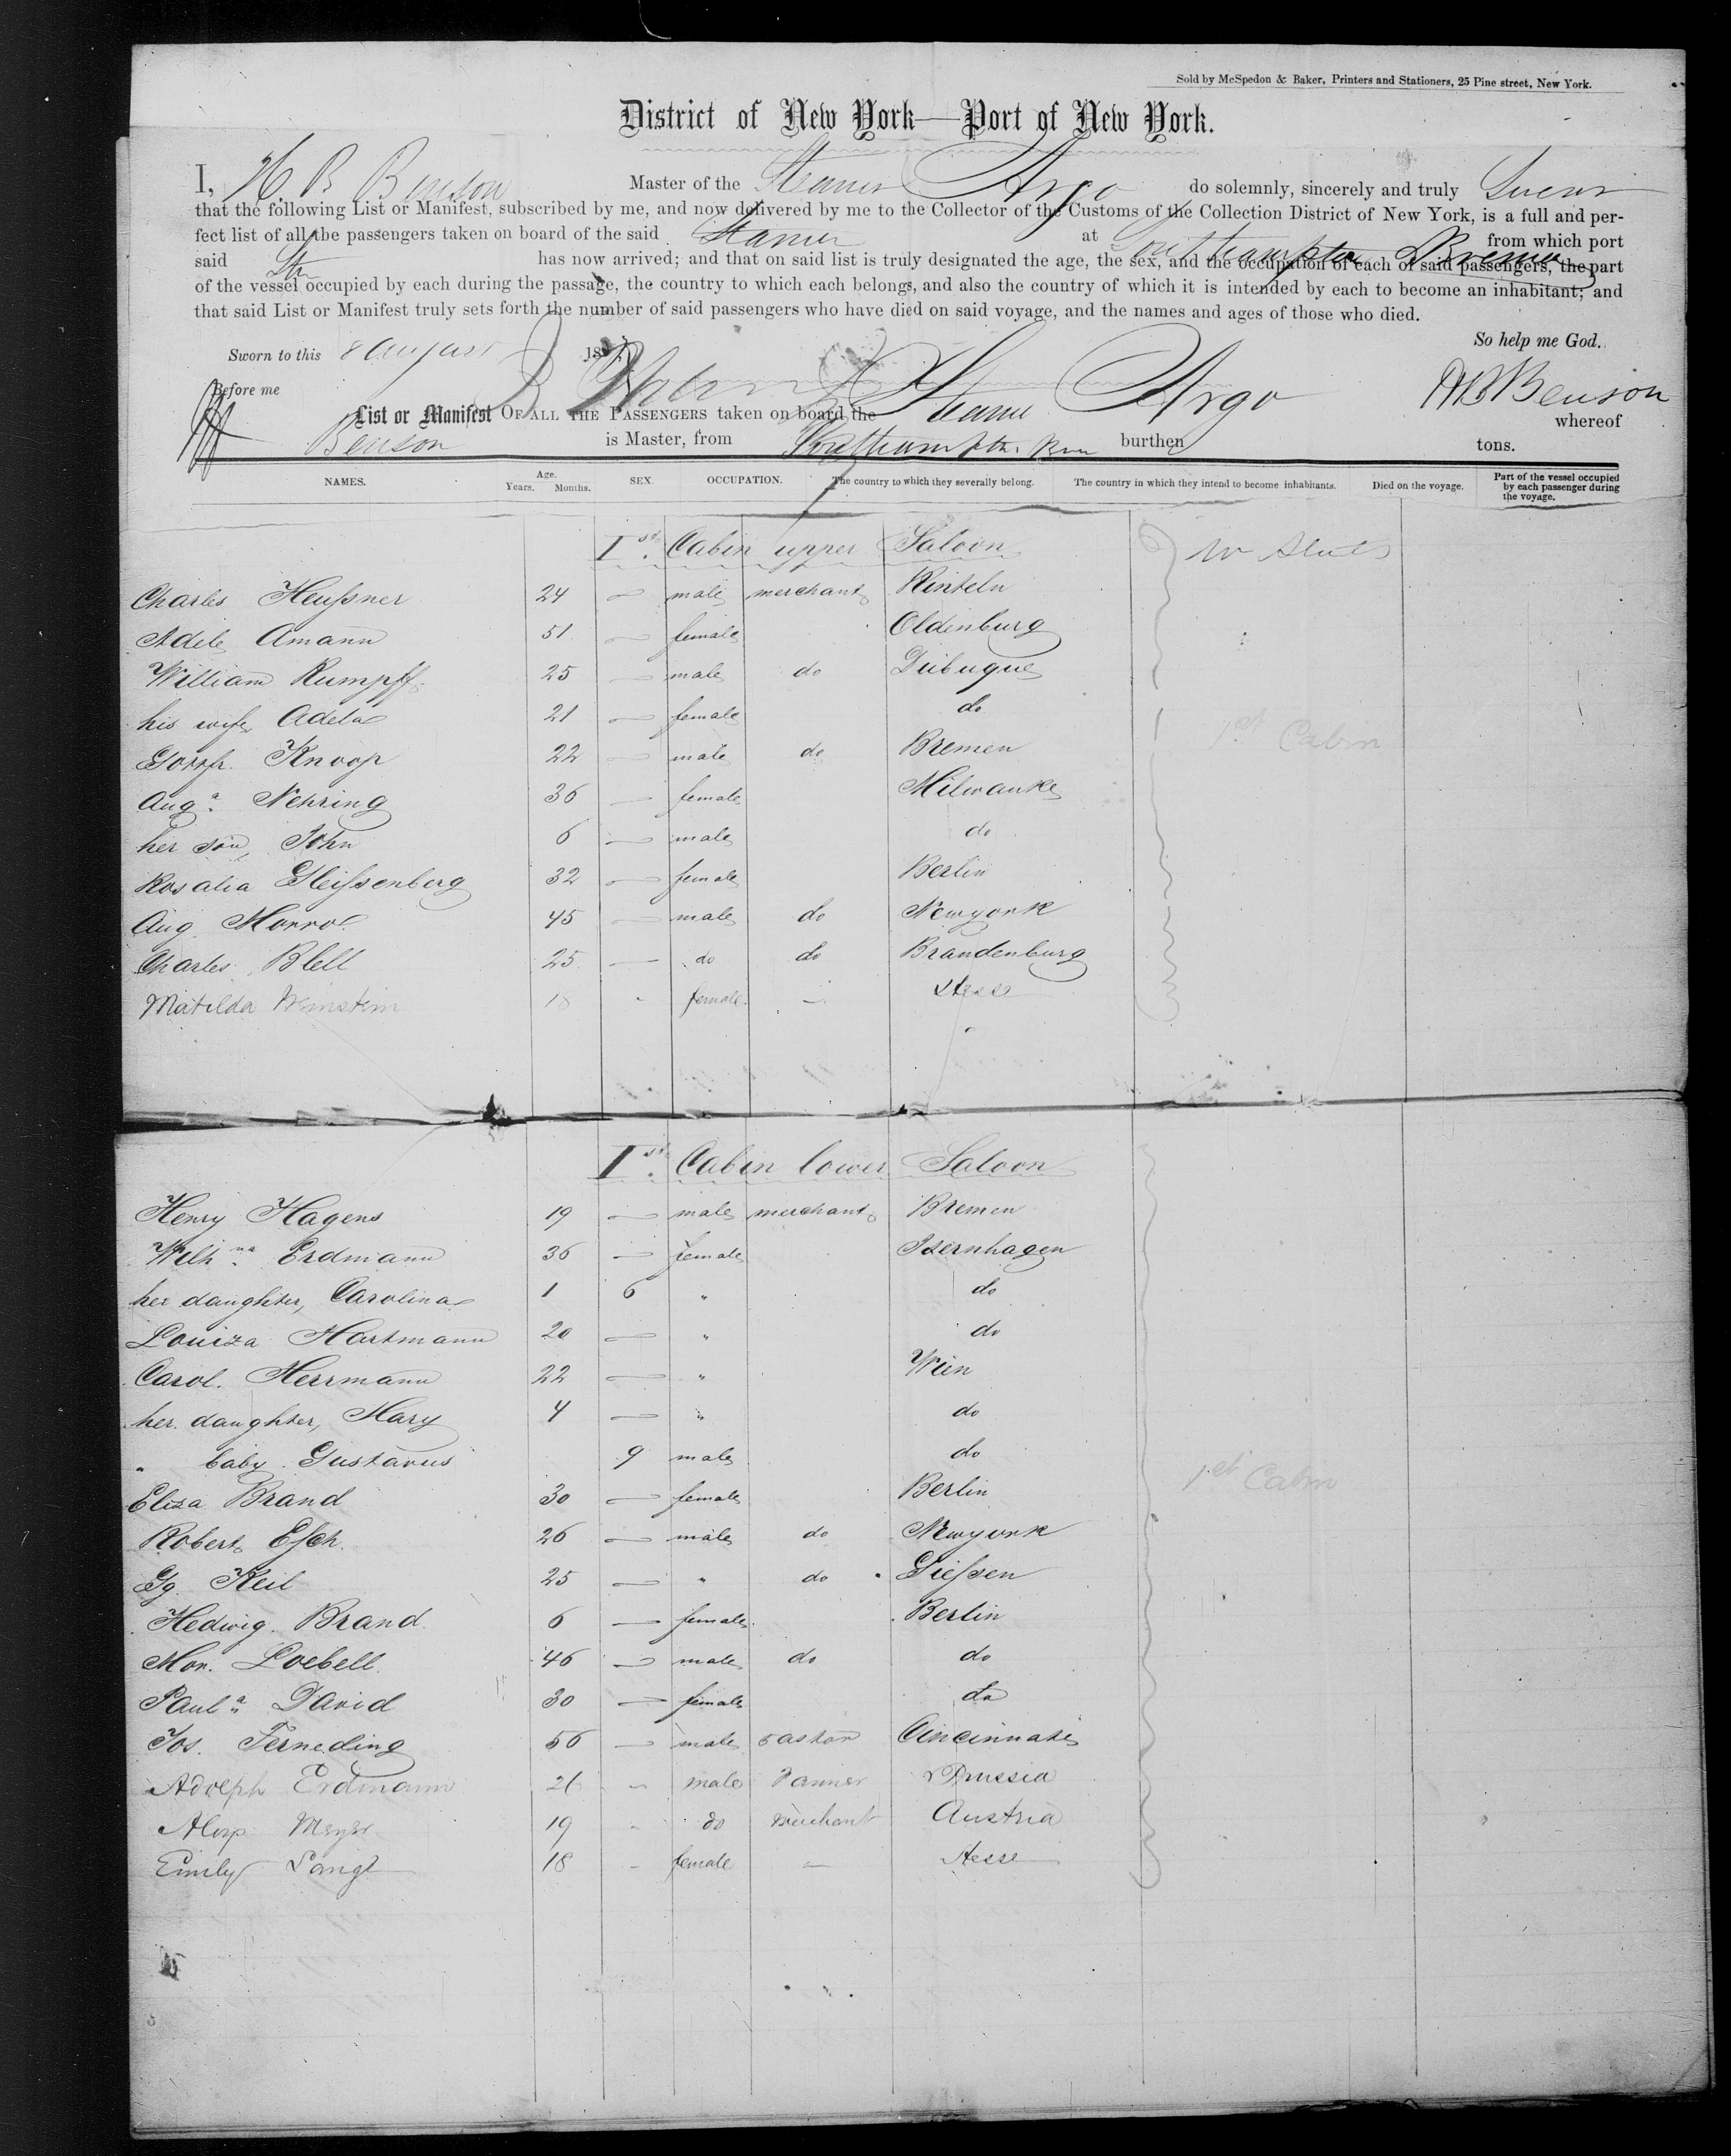 Sold by McSpedon & Baker, Printers and Stationers, 25 Pine street, New York.
District of New York—Port of New York.
I, H. B Benson Master of the Steamer Argo do solemnly, sincerely and truly Swear
that the following List or Manifest, subscribed by me, and now delivered by me to the Collector of the Customs of the Collection District of New York, is a full and per-
fect list of all the passengers taken on board of the said Steamer at Southampton Bremen from which port
said Str has now arrived; and that on said list is truly designated the age, the sex, and the occupation of each of said passengers, the part
of the vessel occupied by each during the passage, the country to which each belongs, and also the country of which it is intended by each to become an inhabitant; and
that said List or Manifest truly sets forth the number of said passengers who have died on said voyage, and the names and ages of those who died.
So help me God.
Sworn to this 8 August 185
Before me HB Benson
List or Manifest OF ALL THE PASSENGERS taken on board the Steamer Argo whereof
Benson is Master, from Southampton burthen tons.
NAMES. Age. Years. Months. SEX. OCCUPATION. The country to which they severally belong. The country in which they intend to become inhabitants. Died on the voyage. Part of the vessel occupied by each passenger during the voyage.
Ist. Cabin upper Saloon
Charles Heußner 24 — male merchant Rinteln
Adele Amann 51 — female Oldenburg
William Rumpff 25 — male do Dubuque
his wife Adela 21 — female do
1st Cabin
Knoop 22 — male do Bremen
Aug.a Nehring 36 — female Milwaukee
her son, John 6 — male do
Rosalia Gleißenberg 32 — female Berlin
Aug. 45 — male do Newyork
Charles Blell 25 — do do Brandenburg
Matilda Weinstein 18 - female — Hesse
Ist. Cabin lower Saloon
Henry Hagens 19 — male merchant Bremen
Wilh.na Erdmann 36 — female Isernhagen
her daughter, Carolina 1 6 " do
Louiza Hartmann 20 — " do
Carol. Herrmann 22 — " Wien
her daughter, Mary 4 — " do
" baby Gustavus 9 male do
Eliza Brand 30 — female Berlin
1st Cabin
Robert Esch. 26 — male do Newyork
Gg. Keil 25 — " do Gießen
Hedwig. Brand. 6 — female Berlin
Mor. Loebell. 46 — male do do
Paul.a David 30 — female do
Jos. Ferneding 56 — male pastor Cincinnati
Adolph Erdmann 26 - male Prussia
Meyer 19 - do Merchant Austria
Emily Lange 18 - female — Hesse